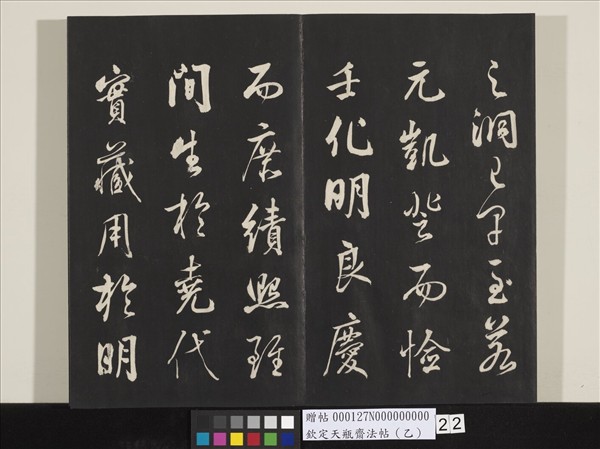 之涸已至若
元凱登而憸
壬化明良慶
而庶績熙雖
間生於堯代
實藏用於明
贈帖 000127N000000000
欽定天瓶齋法帖(乙)
22